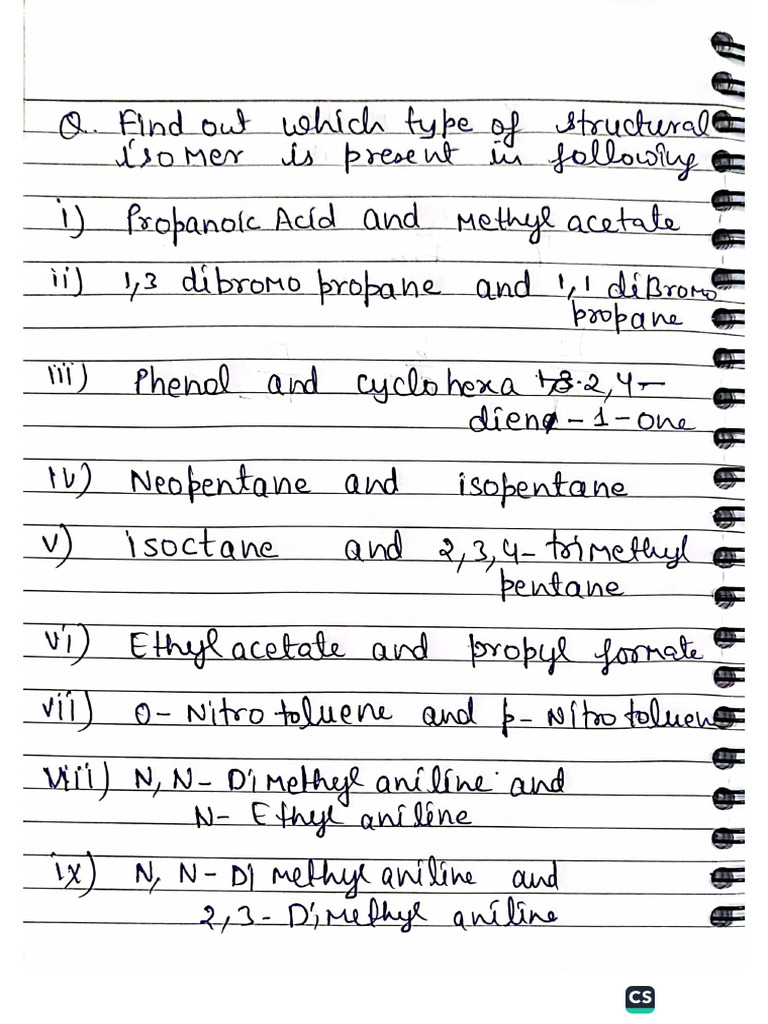 Q. Find out which type of structural
isomer is present in following
i) Propanoic Acid and Methyl acetate
ii) 1,3 dibromo propane and 1,1 diBromo
propane
iii) Phenol and cyclohexa 2,4-
dien-1-one
iv) Neopentane and isopentane
v) isoctane and 2,3,4-trimethyl
pentane
vi) Ethyl acetate and propyl formate
vii) o-Nitro toluene and p-Nitro toluen
viii) N,N-Dimethyl aniline and
N-Ethyl aniline
ix) N,N-Dimethyl aniline and
2,3-Dimethyl aniline
CS